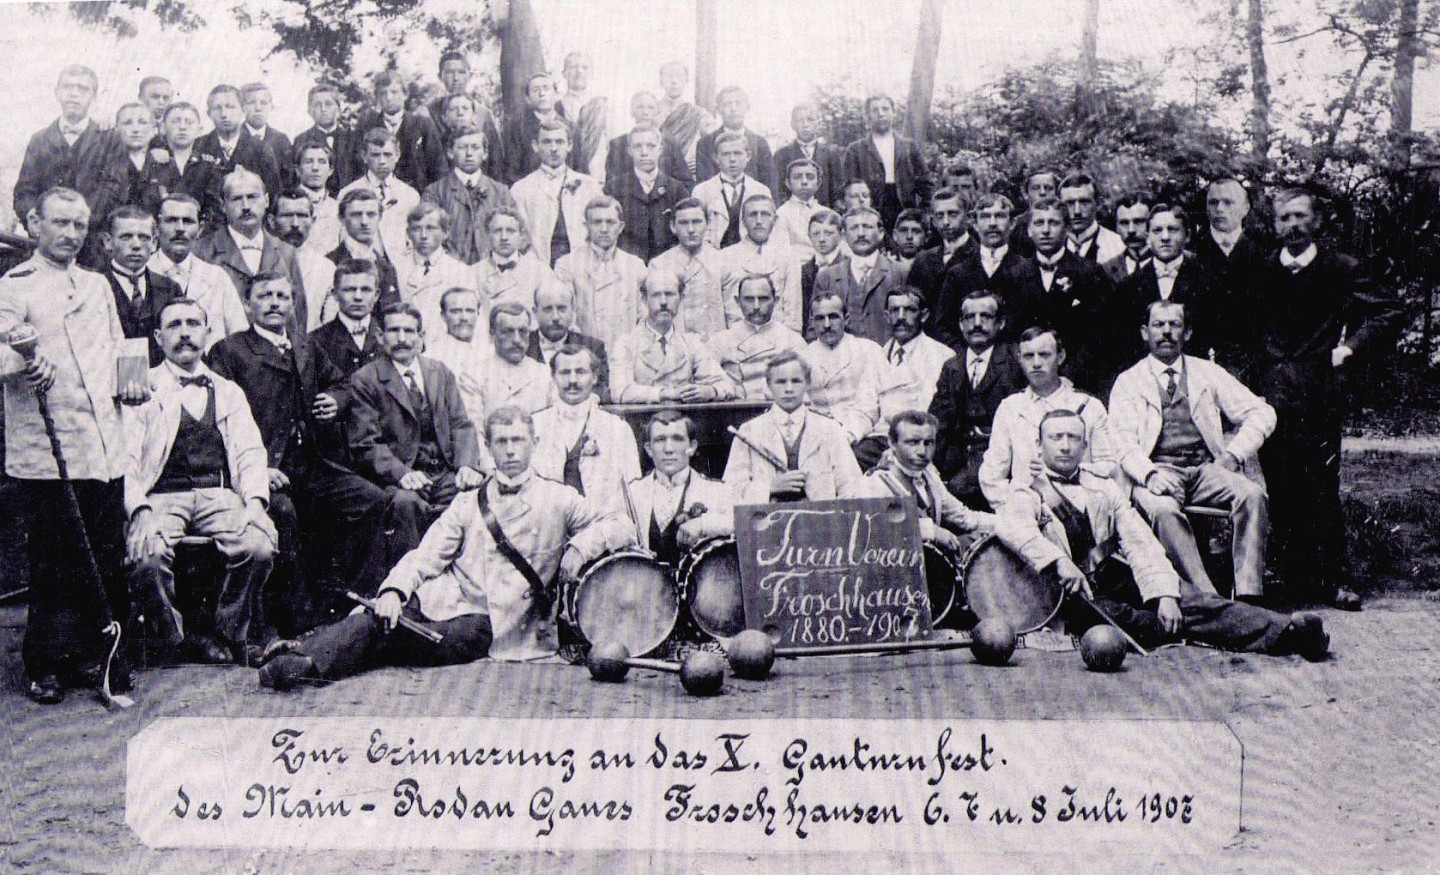 Turn Verein
Froschhausen
1880.-1907.
Zur Erinnerung an das X. Gauturnfest.
des Main - Rodau Gaues Froschhausen 6. 7 u. 8 Juli 1907